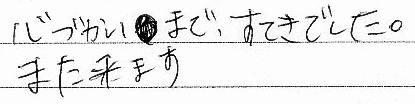 心づかいまで、すてきでした。
また来ます